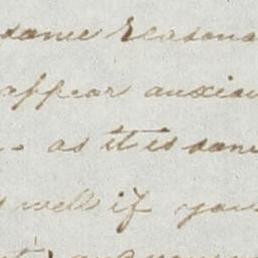 same reasona
appear anxiou
- as it is som
well if you